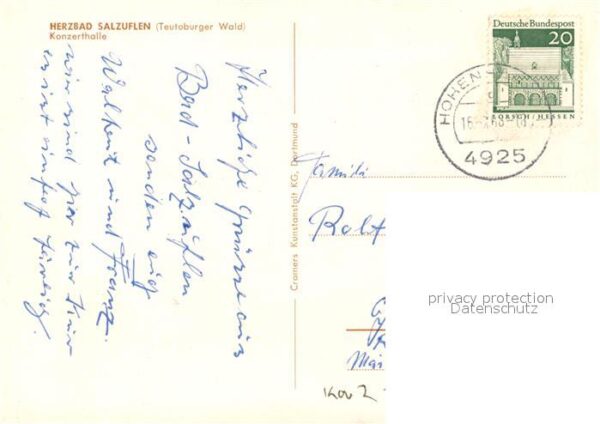 HERZBAD SALZUFLEN (Teutoburger Wald)
Konzerthalle
Herzliche Grüsse aus
Bad-Salzuflen
senden euch
Walheit und Franz.
wir sind hier zur Kur
es ist einfach
Cramers Kunstanstalt KG, Dortmund
Deutsche Bundespost
20
LORSCH/HESSEN
HOHEN
4925
Familie
Ralf
privacy protection
Datenschutz